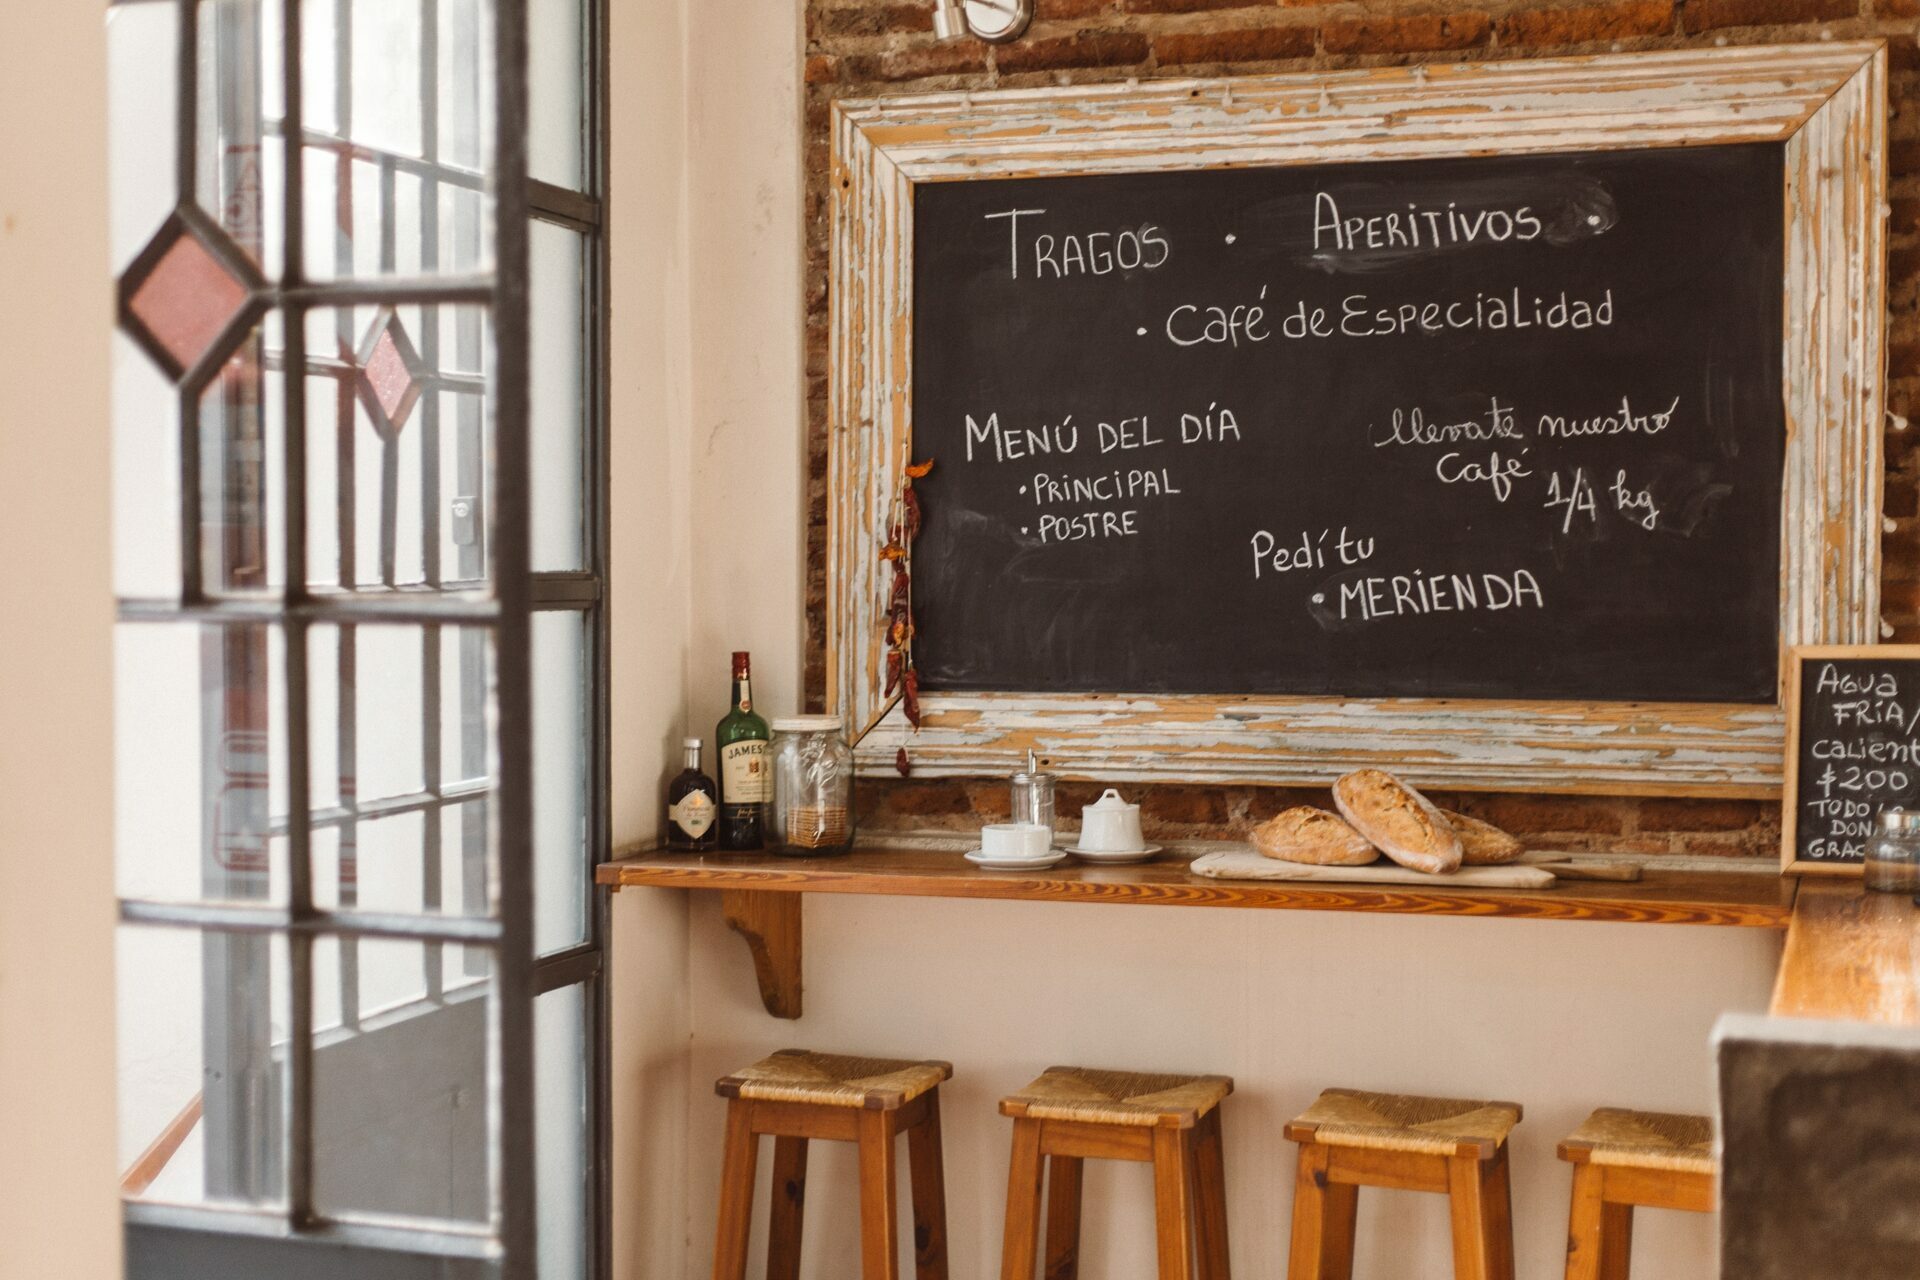 TRAGOS · APERITIVOS ·
· Café de Especialidad
MENÚ DEL DÍA
· PRINCIPAL
· POSTRE
llevate nuestro
Café 1/4 kg
Pedí tu
· MERIENDA
JAMES
AGUA
FRÍA/
CALIENT
$200
TODO
DON
GRAC